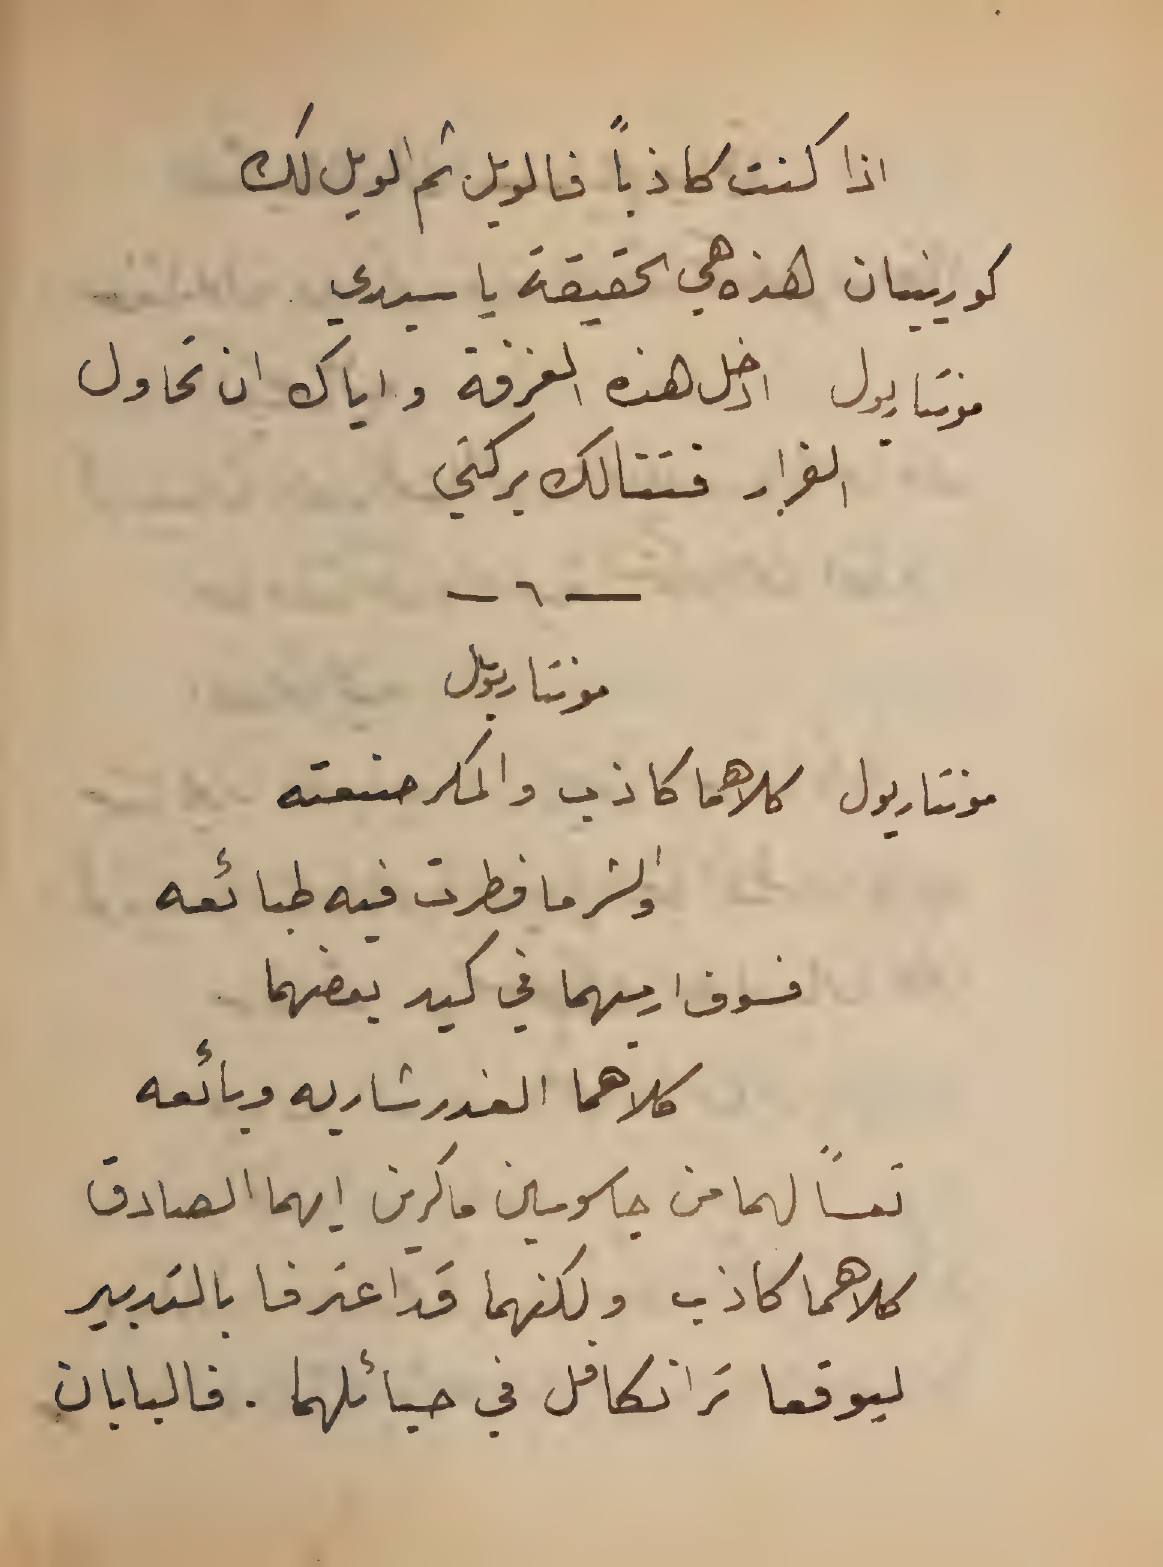 اذا كنت كاذباً فالويل ثم الويل لك
كورينيان هذه هي الحقيقة يا سيدي
مونتاريول ادخل هذه الغرفة واياك ان تحاول
الفرار فتنالك بركتي
— ٦ —
مونتاريول
مونتاريول كلاهما كاذب والمكر صنعته
والشر ما فطرت فيه طبائعه
فسوف ارميهما في كيد بعضهما
كلاهما الغدر شاريه وبائعه
تعساً لهما من جاسوسين ماكرين ايهما الصادق
كلاهما كاذب ولكنهما قد اعترفا بالتدبير
ليوقعا ترانكافل في حبائلهما . فالبابان